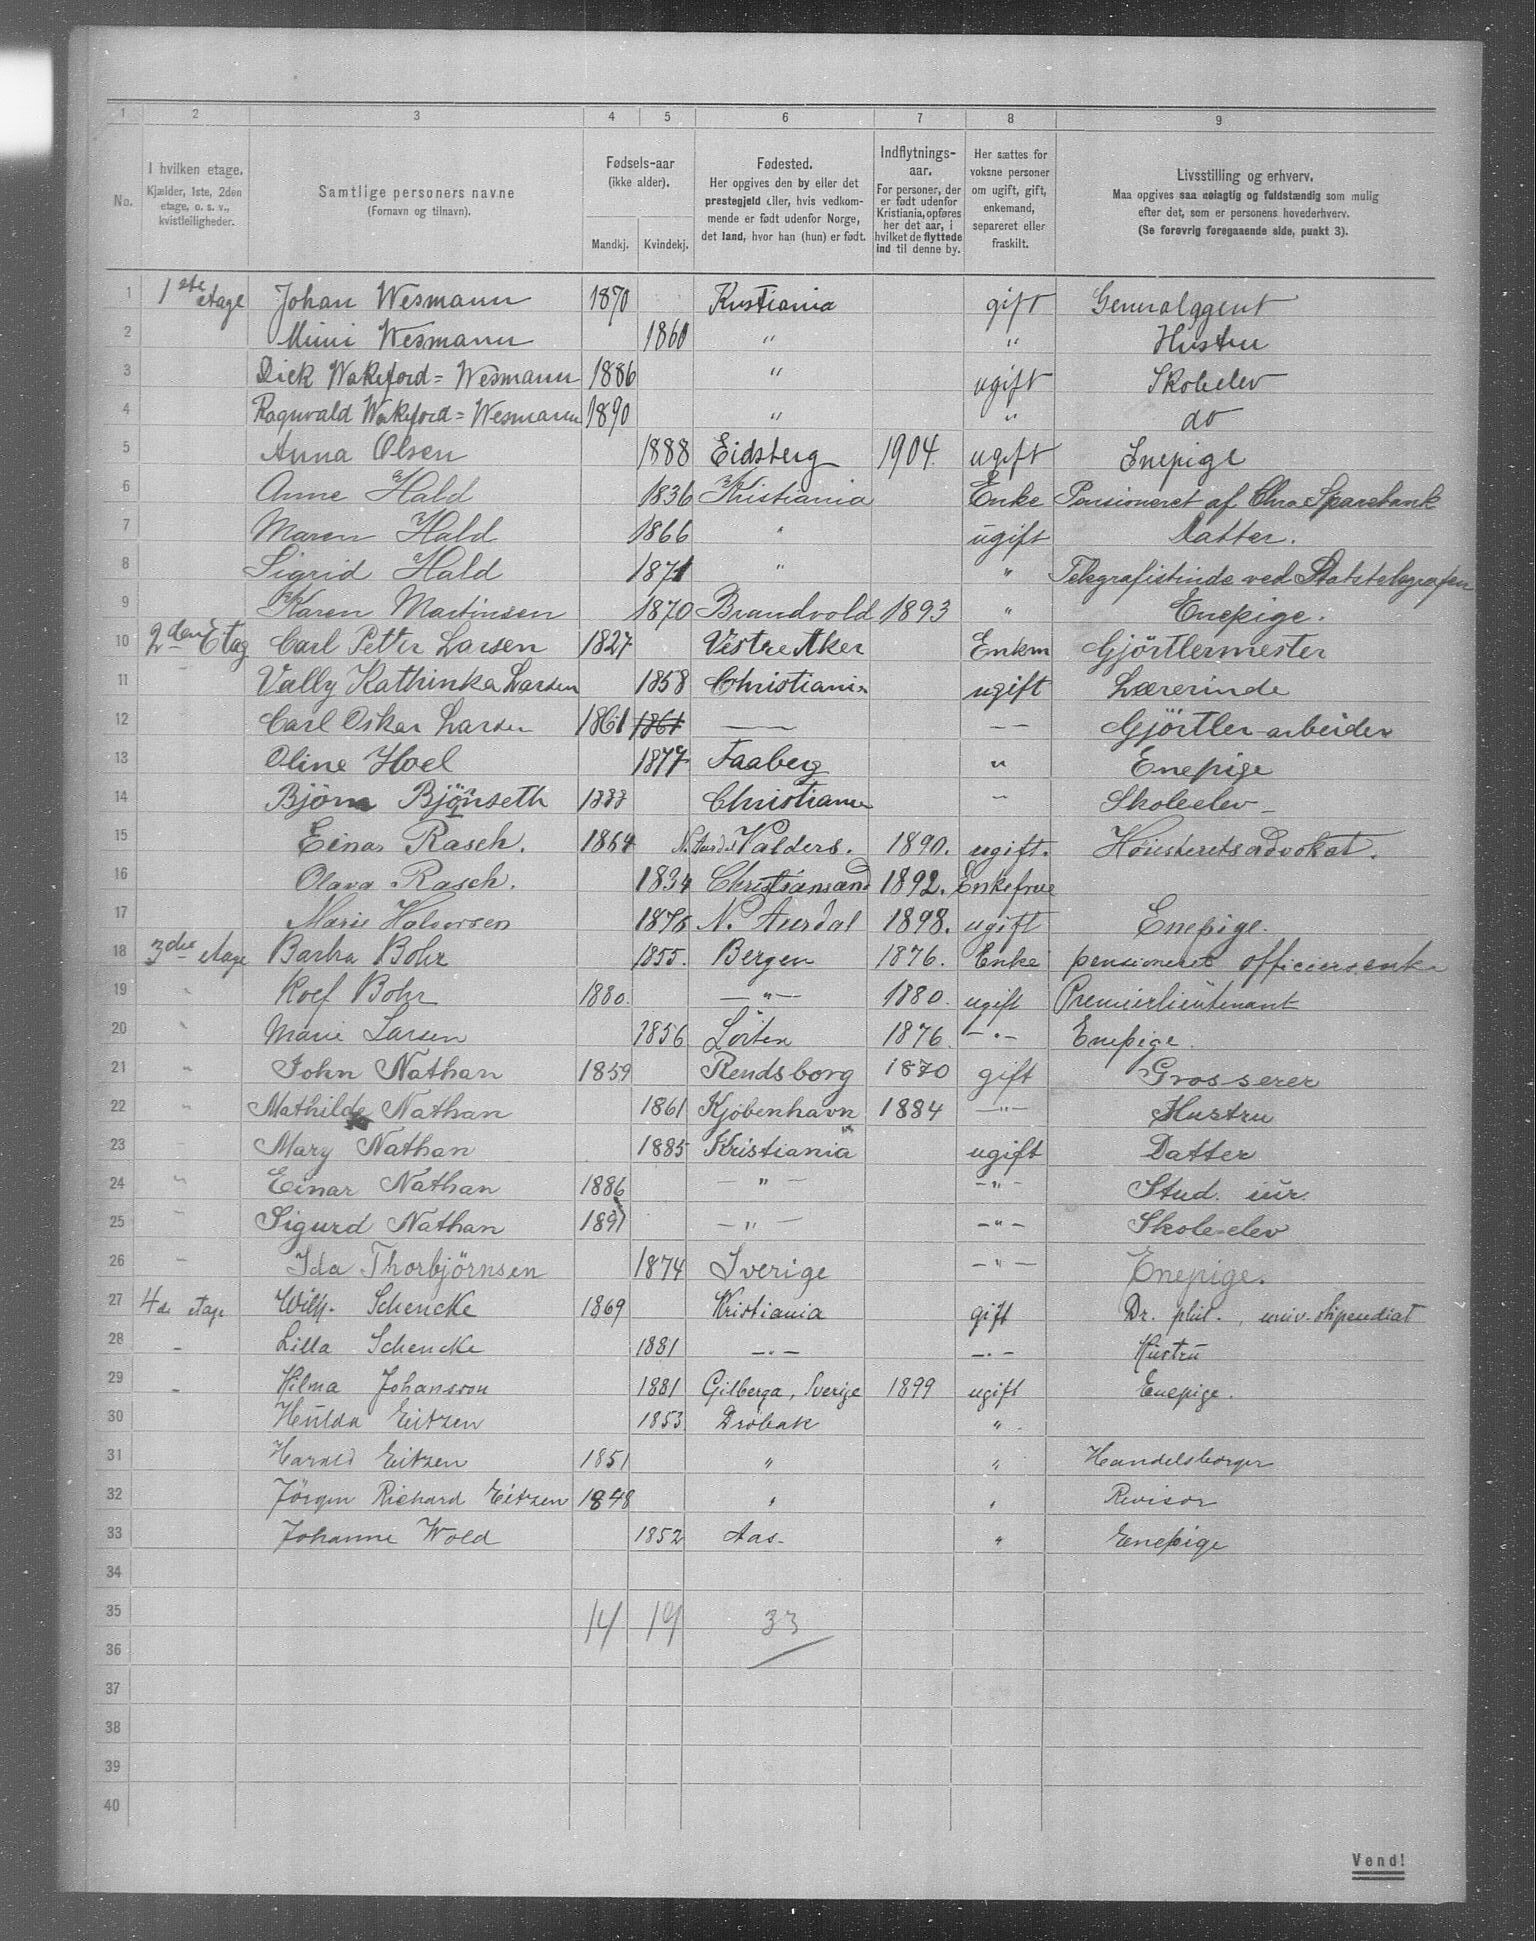 1 2 3 4 5 6 7 8 9
No.
I hvilken etage.
Kjælder, 1ste, 2den etage, o. s. v., kvistleiligheder.
Samtlige personers navne
(Fornavn og tilnavn).
Fødsels-aar
(ikke alder).
Mandkj. Kvindekj.
Fødested.
Her opgives den by eller det prestegjeld eller, hvis vedkommende er født udenfor Norge, det land, hvor han (hun) er født.
Indflytnings-aar.
For personer, der er født udenfor Kristiania, opføres her det aar, i hvilket de flyttede ind til denne by.
Her sættes for voksne personer om ugift, gift, enkemand, separeret eller fraskilt.
Livsstilling og erhverv.
Maa opgives saa nøiagtig og fuldstændig som mulig efter det, som er personens hovederhverv.
(Se forøvrig foregaaende side, punkt 3).
1 1ste etage Johan Wesmann 1870 Kristiania gift Generalagent
2 Mimi Wesmann 1860 " " Hustru
3 Dick Wakeford=Wesmann 1886 " ugift Skoleelev
4 Ragnvald Wakeford=Wesmann 1890 " " do
5 Anna Olsen 1888 Eidsberg 1904 ugift Enepige
6 Anne Hald 1836 Kristiania Enke Pensioneret af Chra Sparebank
7 Maren Hald 1866 " ugift Datter.
8 Sigrid Hald 1871 " " Telegrafistinde ved Statstelegrafen
9 Karen Martinsen 1870 Brandvold 1893 " Enepige.
10 2den Etag Carl Petter Larsen 1827 Vestre Aker Enkm Gjörtlermester
11 Vally Kathinka Larsen 1858 Christiania ugift Lærerinde
12 Carl Oskar Larsen 1861 1861 — — Gjörtler-arbeider
13 Oline Hoel 1877 Faaberg " Enepige
14 Björn Björnseth 1888 Christiania " Skoleelev
15 Einar Rasch. 1864 N. Aurdal Valders. 1890. ugift. Höiesteretsadvokat.
16 Olava Rasch. 1834 Christiansand 1892. Enkefrue
17 Marie Halvorsen 1876 N. Aurdal 1898. ugift Enepige.
18 3die etage Barbra Bohr 1855. Bergen 1876. Enke pensioneret officiersenke
19 " Rolf Bohr 1880. — " — 1880. ugift Premierlieutenant
20 " Marie Larsen 1856 Löiten 1876 — " — Enepige.
21 " John Nathan 1859 Rendsborg 1870 gift Grosserer
22 " Mathilde Nathan 1861 Kjöbenhavn 1884 — " — Hustru
23 " Mary Nathan 1885 Kristiania ugift Datter
24 " Einar Nathan 1886 — " — — " — Stud. iur.
25 " Sigurd Nathan 1891 — " — — " — Skole-elev
26 " Ida Thorbjörnsen 1874 Sverige — " — Enepige.
27 4de etage Wilh. Schencke 1869 Kristiania gift Dr. phil., univ. stipendiat
28 " Lilla Schencke 1881 — " — — " — Hustru
29 " Hilma Johansson 1881 Gilberga, Sverige 1899 ugift Enepige.
30 Hulda Eitzen 1853 Dröbak "
31 Harald Eitzen 1851 " " Handelsborger
32 Jörgen Richard Eitzen 1848 " " Revisor
33 Johanne Wold 1852 Aas. " Enepige
34
35 14 19 33
36
37
38
39
40
Vend!